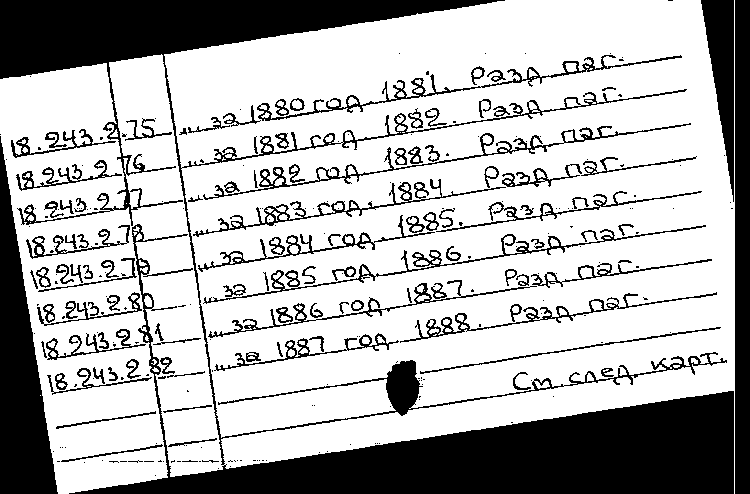 18.243.2.75 ... за 1880 год. 1881. Разд паг.
18.243.2.76 ... за 1881 год. 1882. Разд паг.
18.243.2.77 ... за 1882 год 1883. Разд паг.
18.243.2.78 ... за 1883 год. 1884. Разд паг.
18.243.2.79 ... за 1884 год. 1885. Разд паг.
18.243.2.80 ... за 1885 год. 1886. Разд паг.
18.243.2.81 ... за 1886 год 1887. Разд паг.
18.243.2.82 ... за 1887 год 1888. Разд паг.
См. след. карт.